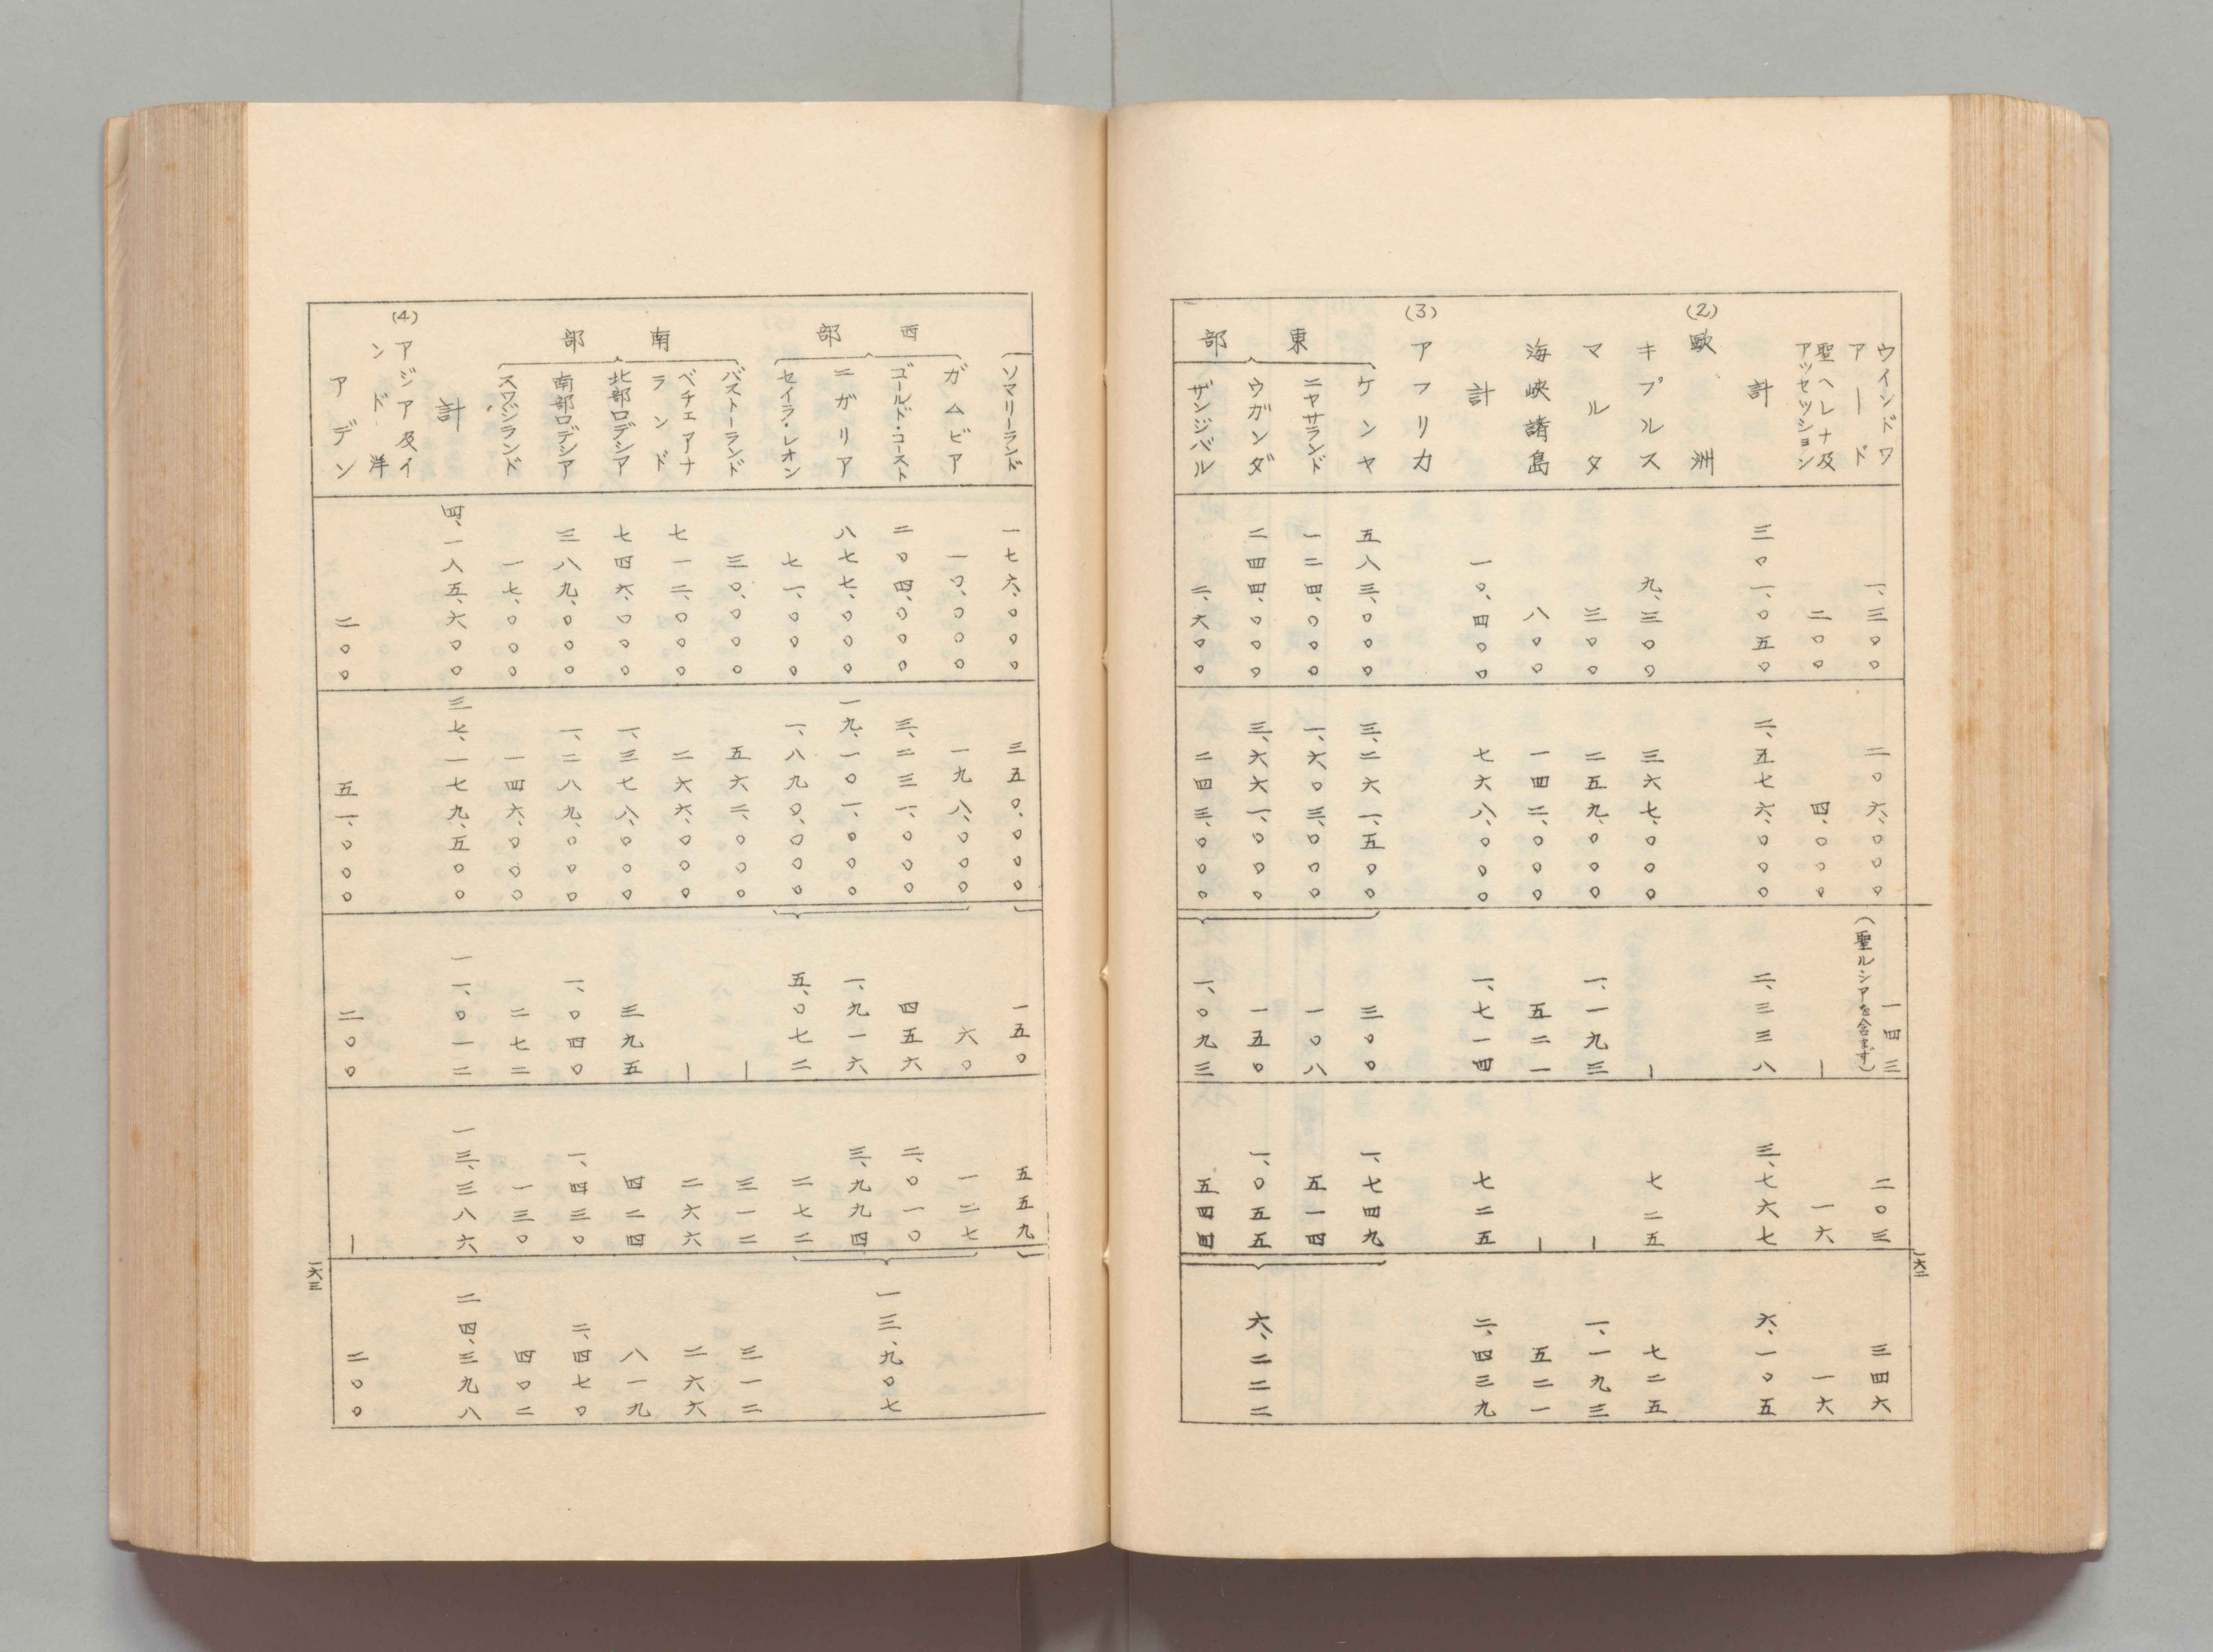 ウインドワ
アード 一、三〇〇 二〇六、〇〇〇 一四三 二〇三 三四六
（聖ルシアを含まず）
聖ヘレナ及
アッセッション 二〇〇 四、〇〇〇 ｜ 一六 一六
計 三〇一、〇五〇 二、五七六、〇〇〇 二、三三八 三、七六七 六、一〇五
(2) 歐洲
キプルス 九、三〇〇 三六七、〇〇〇 ｜ 七二五 七二五
マルタ 三〇〇 二五九、〇〇〇 一、一九三 ｜ 一、一九三
海峽諸島 八〇〇 一四二、〇〇〇 五二一 ｜ 五二一
計 一〇、四〇〇 七六八、〇〇〇 一、七一四 七二五 二、四三九
(3) アフリカ
東部
ケンヤ 五八三、〇〇〇 三、二六一、五〇〇 三〇〇 一、七四九
ニヤサランド 一二四、〇〇〇 一、六〇三、〇〇〇 一〇八 五一四
ウガンダ 二四四、〇〇〇 三、六六一、〇〇〇 一五〇 一、〇五五 六、二二二
ザンジバル 二、六〇〇 二四三、〇〇〇 一、〇九三 五四四
一六二
ソマリーランド 一七六、〇〇〇 三五〇、〇〇〇 一五〇 五五九
西部
ガムビア 一〇、〇〇〇 一九八、〇〇〇 六〇 一二七
ゴールド・コースト 二〇四、〇〇〇 三、二三一、〇〇〇 四五六 二、〇一〇 一三、九〇七
ニガリア 八七七、〇〇〇 一九、一〇一、〇〇〇 一、九一六 三、九九四
セイラ・レオン 七一、〇〇〇 一、八九〇、〇〇〇 五、〇七二 二七二
南部
バストーランド 三〇、〇〇〇 五六二、〇〇〇 ｜ 三一二 三一二
ベチェアナ
ランド 七一二、〇〇〇 二六六、〇〇〇 ｜ 二六六 二六六
北部ロデシア 七四六、〇〇〇 一、三七八、〇〇〇 三九五 四二四 八一九
南部ロデシア 三八九、〇〇〇 一、二八九、〇〇〇 一、〇四〇 一、四三〇 二、四七〇
スワジランド 一七、〇〇〇 一四六、〇〇〇 二七二 一三〇 四〇二
計 四、一八五、六〇〇 三七、一七九、五〇〇 一一、〇一二 一三、三八六 二四、三九八
(4) アジア及イ
ンド洋
アデン 二〇〇 五一、〇〇〇 二〇〇 ｜ 二〇〇
一六三